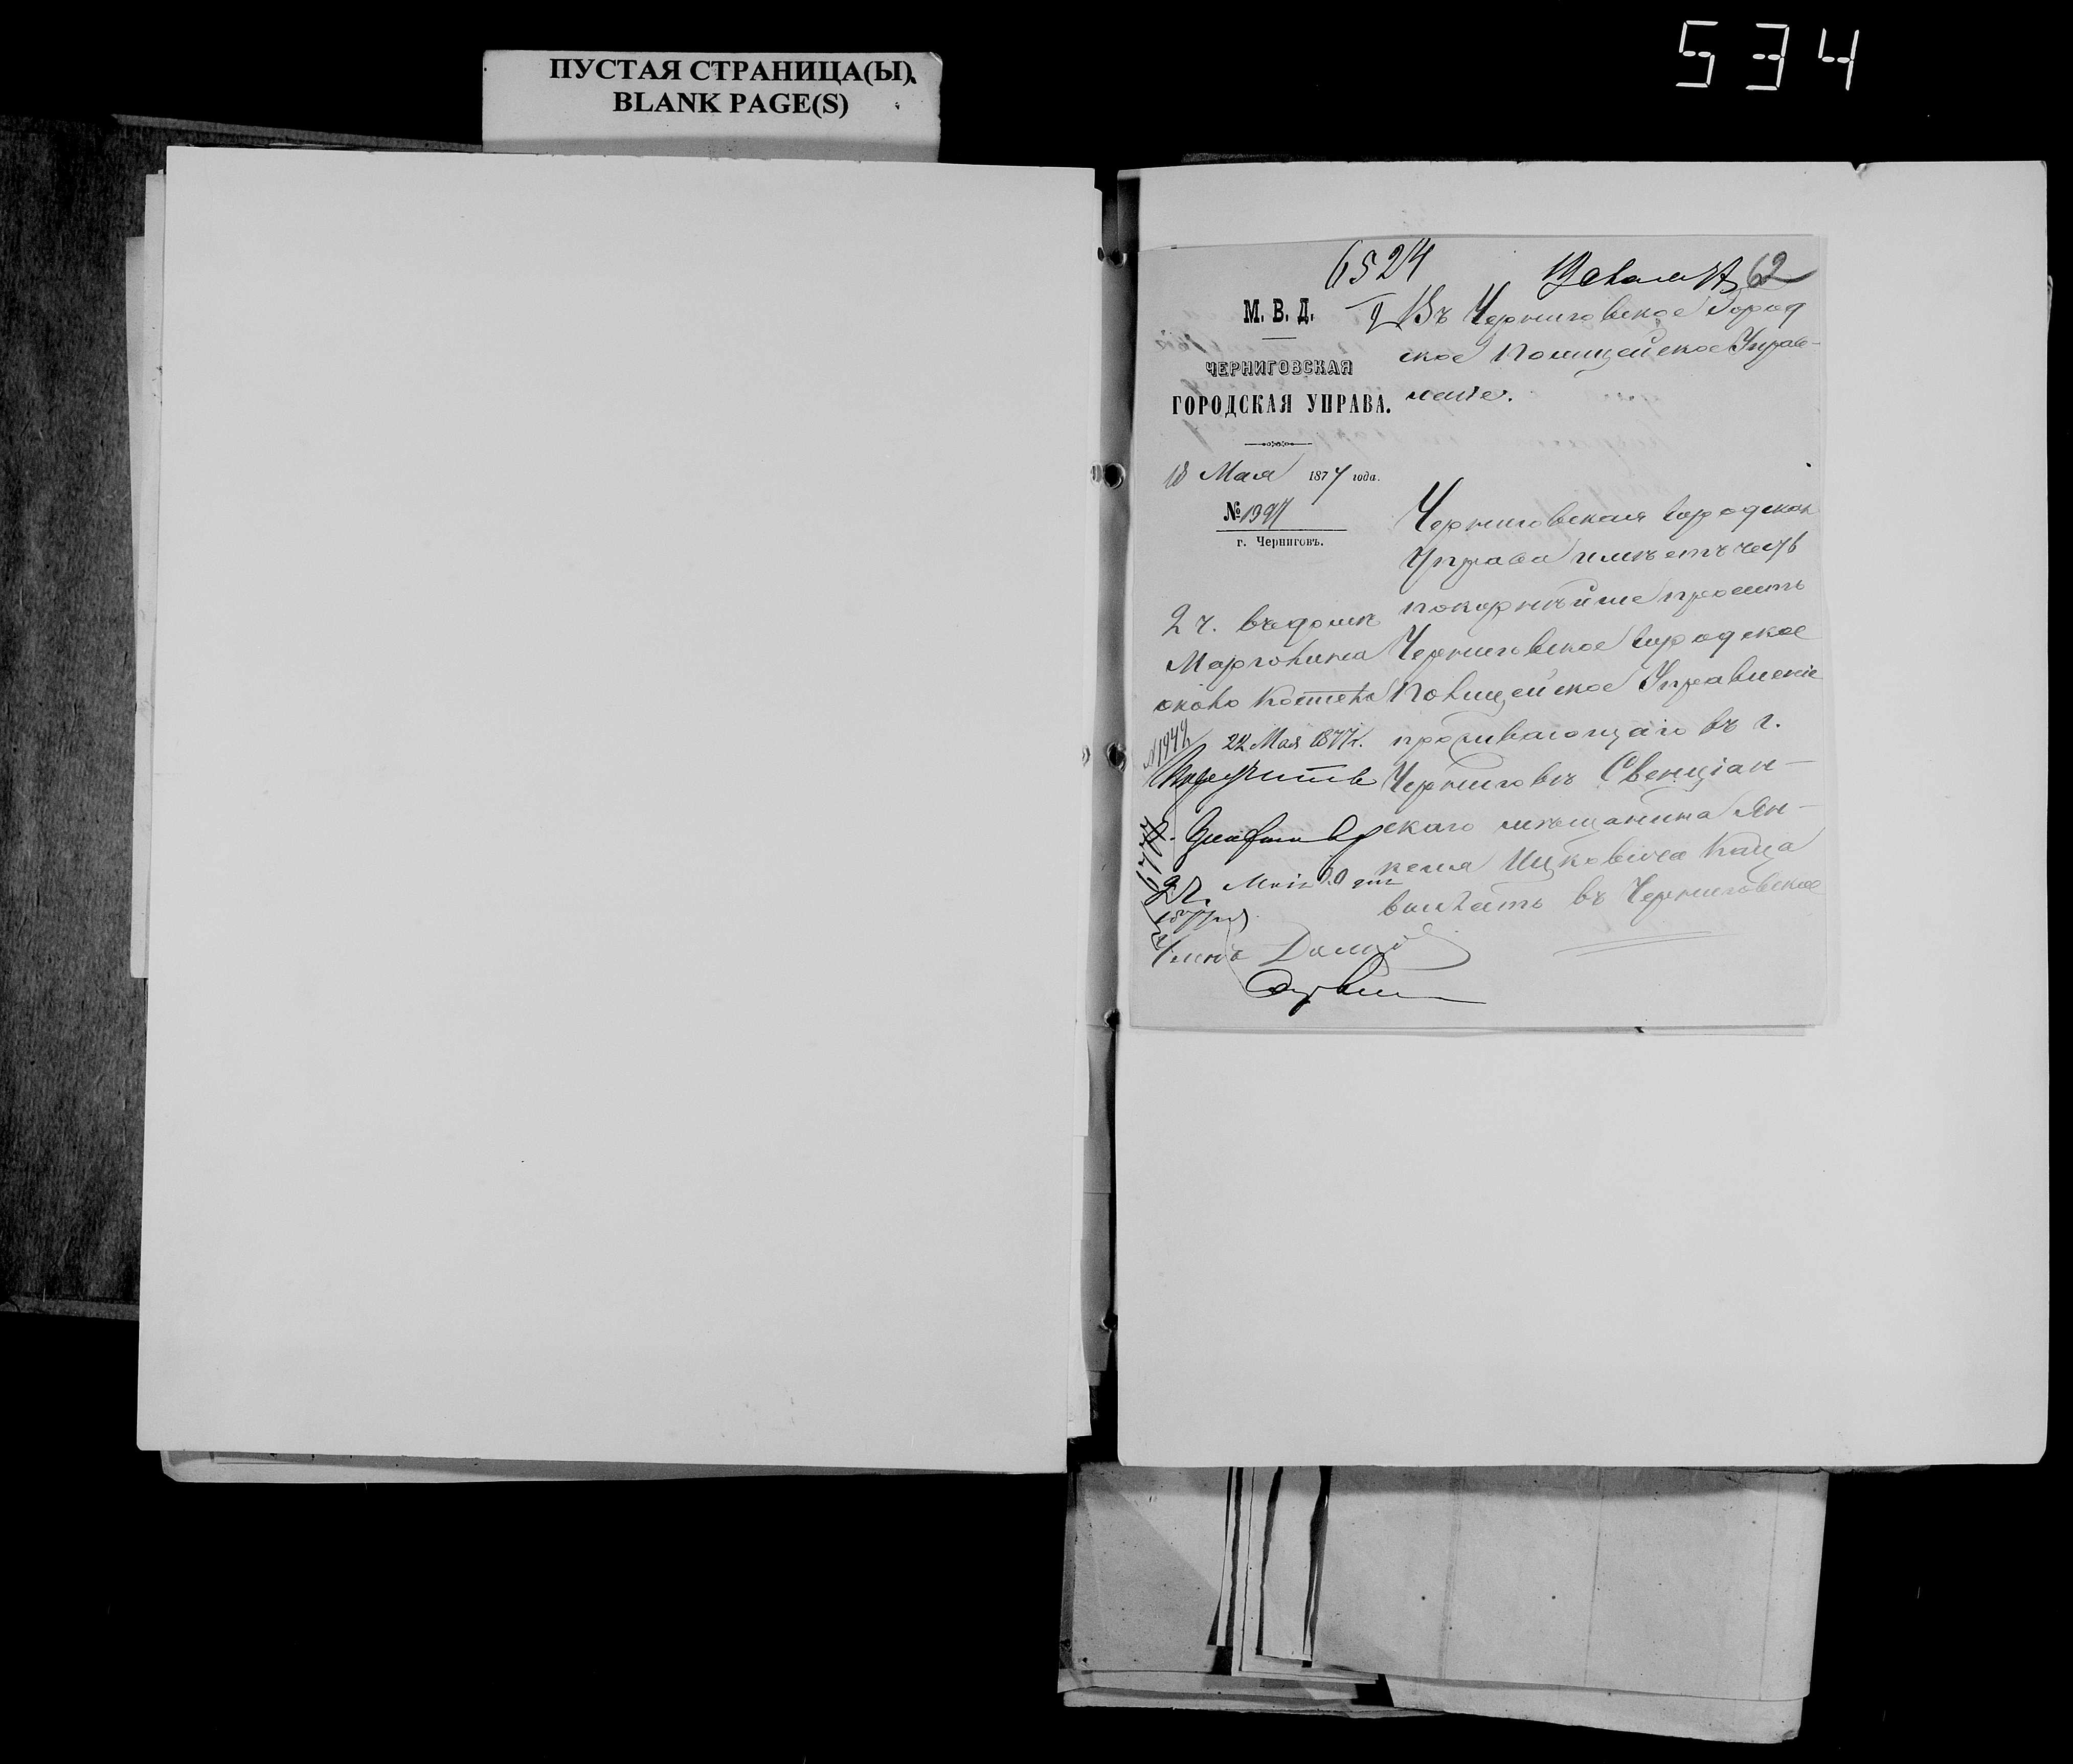 534
ПУСТАЯ СТРАНИЦА(Ы)
BLANK PAGE(S)
6524
62
М. В. Д.
ЧЕРНИГОВСКАЯ
ГОРОДСКАЯ УПРАВА.
18 Мая 1877 года.
№ 1997
г. Черниговъ.
Въ Черниговское Город
ское Полицейское Управ-
леніе.
Черниговская городская
Управа имѣетъ честь
покорнѣйше просить
Черниговское городское
Полицейское Управленіе
проживающаго въ г.
Черниговѣ Свенціан-
скаго мѣщанина Ян-
келя Ицковича Каца
выслать въ Черниговское
2 ч. въ домѣ
Марголина
около Костела
№ 1942
22 Мая 1877 г.
6777
Членъ